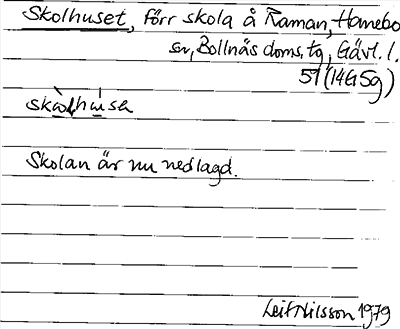 Skolhuset, förr skola å Raman, Hanebo
sn, Bollnäs doms. tg, Gävl. l.
51 (14G5g)
skòlhùsa
Skolan är nu nedlagd.
Leif Nilsson 1979